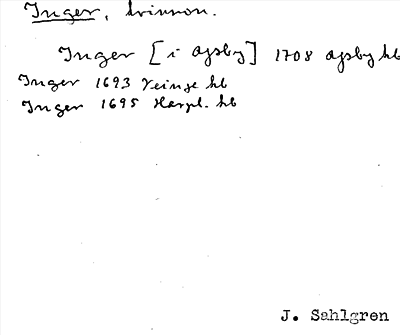 Inger, kvinnon.
Inger [i Aysby] 1708 Aysby kb
Inger 1693 Veinge kb
Inger 1695 Harpl. kb
J. Sahlgren